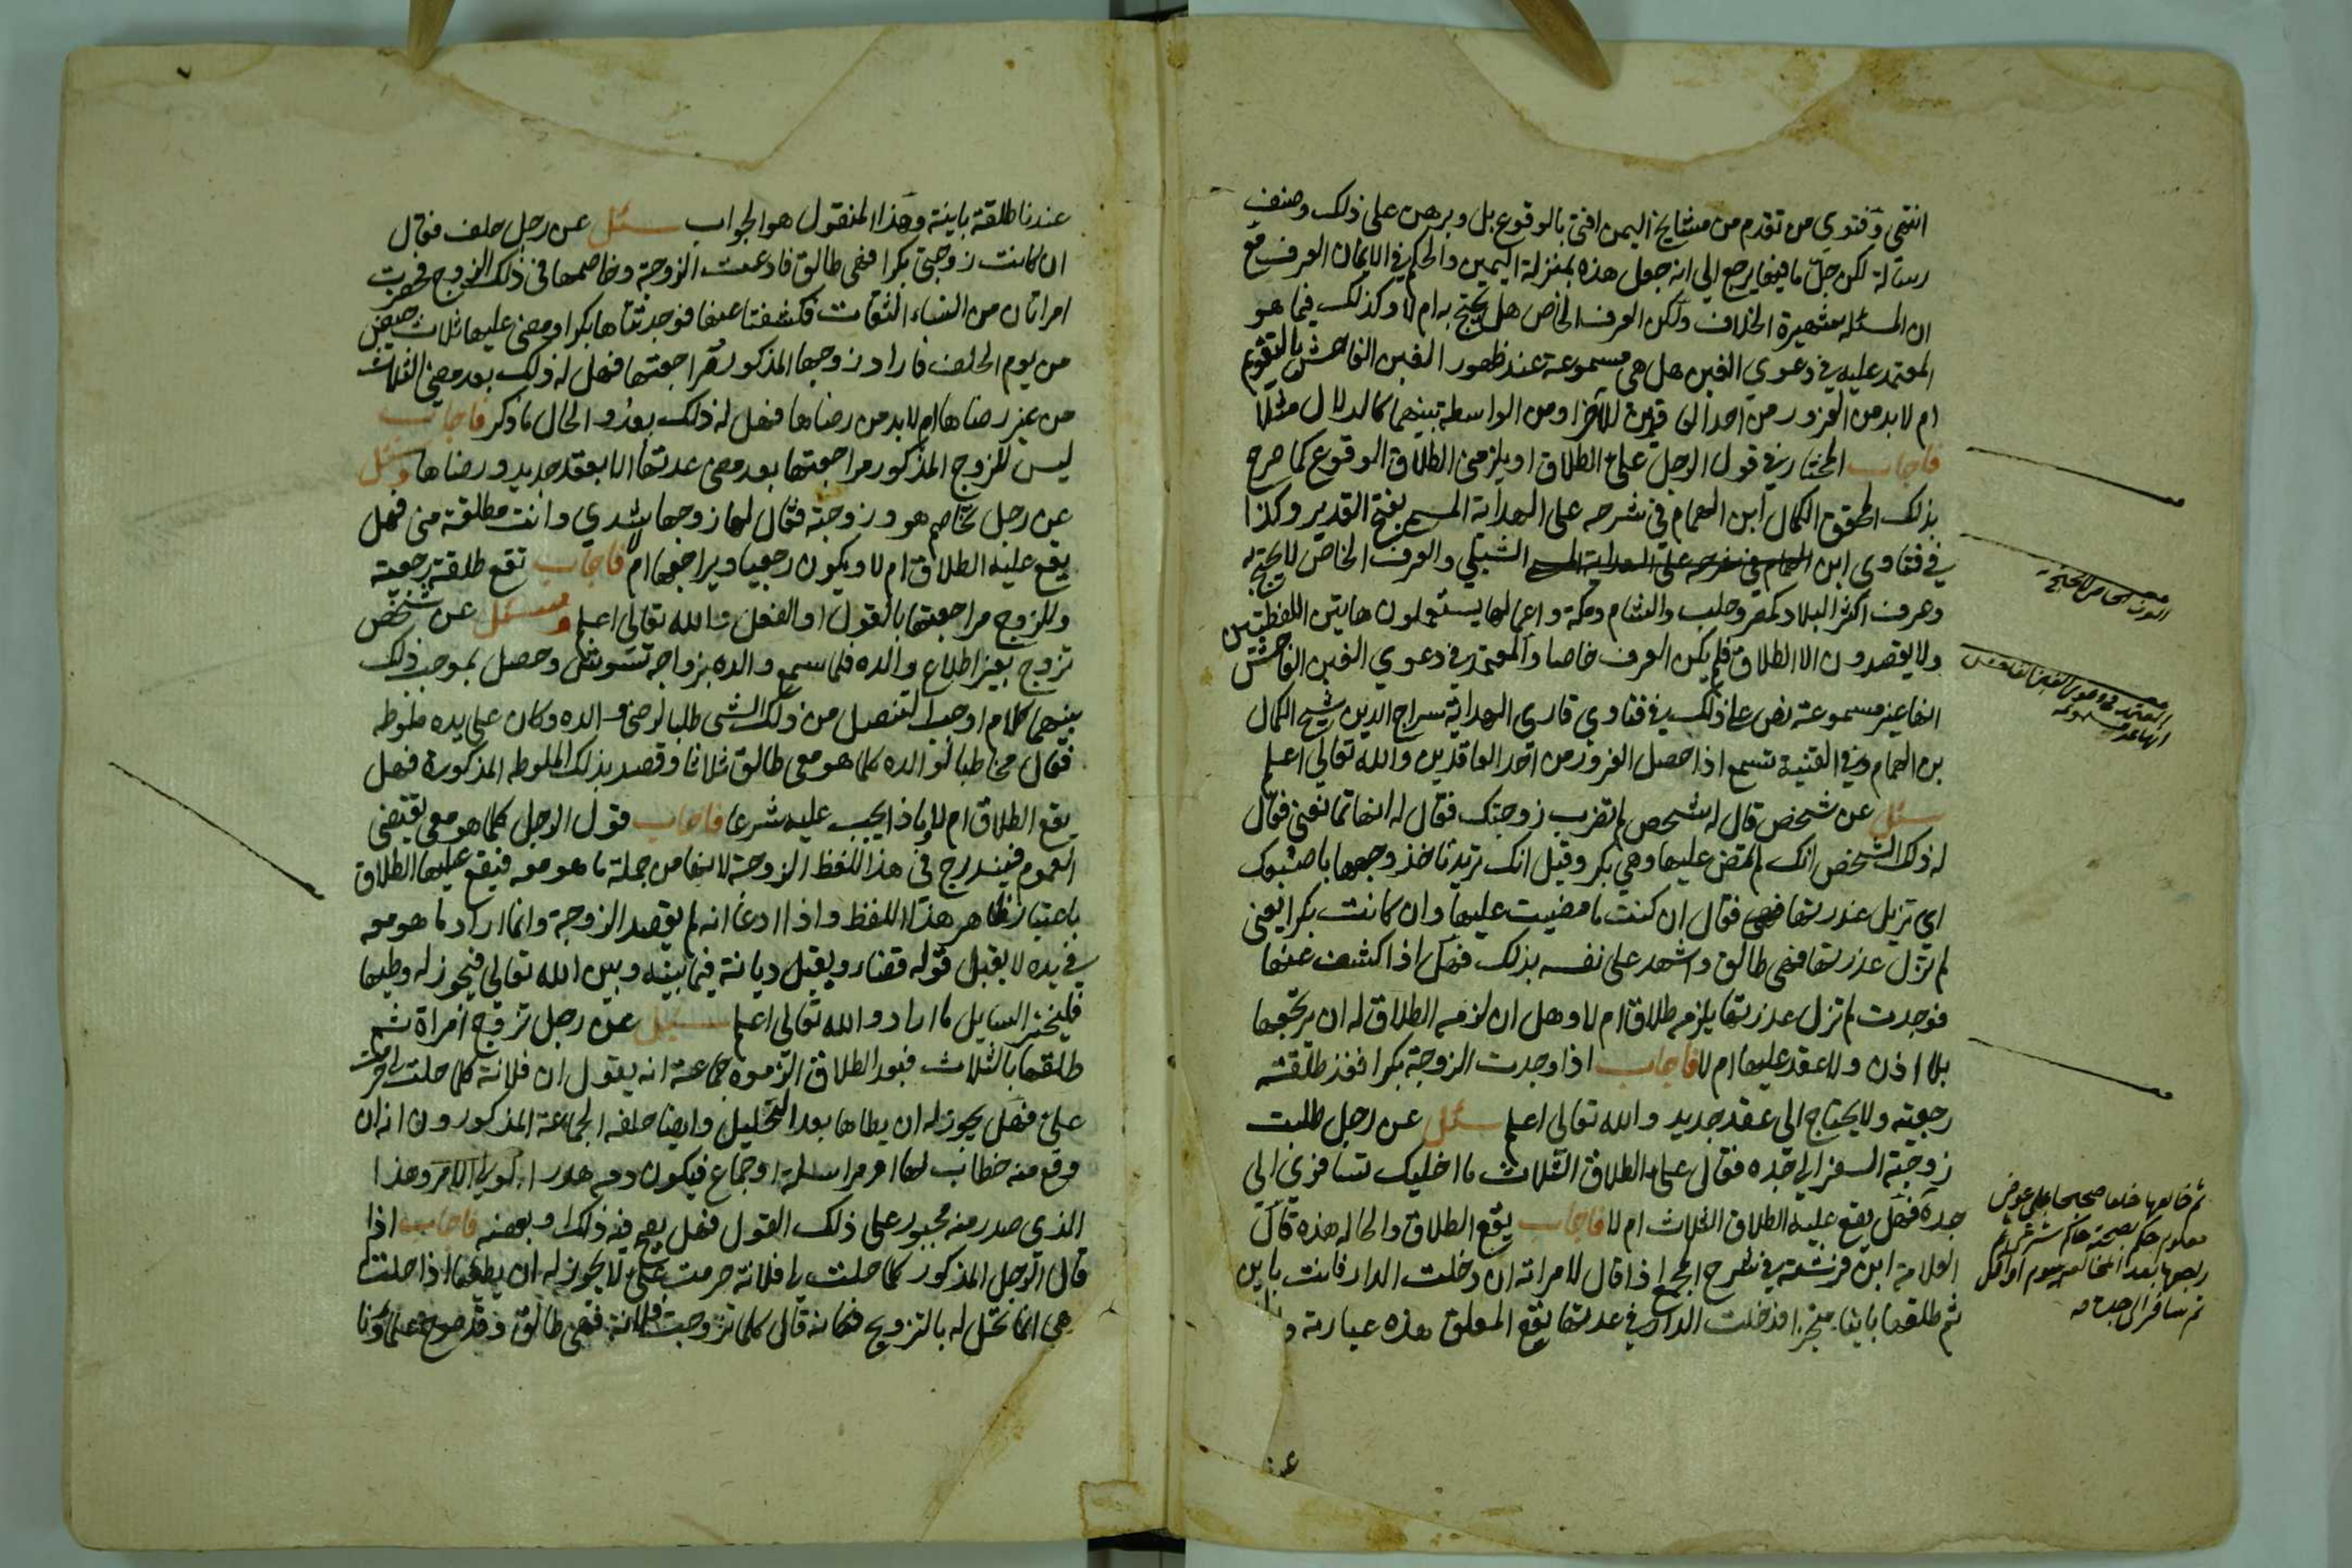 انتهى وفتوى من تقدم من مشايخ اليمن افتى بالوقوع بل وبرهن على ذلك وصنف
رسالة لكن جل ما فيها يرجع الي انه جعل هذه بمنزلة اليمين والحكم في الايمان العرف مع
ان المسئله شهيرة الخلاف ولكن العرف الخاص هل يحتج به ام لا وكذلك فيما هو
المعتمد عليه في دعوي الغبن هل هي مسموعة عند ظهور الغبن الفاحش بالتقويم
ام لا بد من الغرور من احد العاقدين للاخر او من الواسطه بينهما كالدلال مثلا
فاجاب المختار في قول الرجل علي الطلاق او يلزمني الطلاق الوقوع كما صرح
بذلك المحقق الكمال ابن الهمام في شرحه على الهداية المسمى بفتح القدير وكذا
في فتاوى ابن الهمام في شرحه على الهداية المسمى الشبلي والعرف الخاص لا يحتج به
وعرف اكثر البلاد كمصر وحلب والشام ومكة واعمالها يستعملون هاتين اللفظتين
ولا يقصدون الا الطلاق فلم يكن العرف خاصا والمعتمد في دعوي الغبن الفاحش
انها غير مسموعة نص على ذلك في فتاوي قاري الهداية سراج الدين شيخ الكمال
بن الهمام وفي القنية تسمع اذا حصل الغرور من احد العاقدين والله تعالي اعلم
سئل عن شخص قال له شخص لم تقرب زوجتك فقال له انها تمانعني فقال
له ذلك الشخص انك لم تفض عليها وهي بكر وقيل انك تريد تاخذ وجهها باصبوعك
اي تزيل عذرتها فقال ان كنت ما مضيت عليها وان كانت بكرا يعني
لم تزل عذرتها فهي طالق واشهد على نفسه بذلك فهل اذا كشف عنها
فوجدت لم تزل عذرتها يلزمه طلاق ام لا وهل ان لزمه الطلاق له ان يرتجعها
بلا اذن ولا عقد عليها ام لا فاجاب اذا وجدت الزوجة بكرا فقد طلقت
رجعية ولا يحتاج الى عقد جديد والله تعالى اعلم سئل عن رجل طلبت
زوجته السفر الي جده فقال علي الطلاق الثلاث ما اخليك تسافري الي
جده فهل يقع عليه الطلاق الثلاث ام لا فاجاب يقع الطلاق والحاله هذه قال
العلامة ابن فرشته في شرح المجمع اذا قال لامراته ان دخلت الدار فانت باين
ثم طلقها باينا منجزا فدخلت الدار في عدتها يقع المعلق هذه عبارته و
العرف الخاص لا يحتج به
المعتمد في دعوى الغبن الفاحش
انها غير مسموعة
ثم خالعها خلعا صحيحا على عوض
معلوم حكم بصحته حاكم شرعي ثم
بعد المخالعه بيوم او اقل
ثم سافر الى جده
عندنا طلقة باينة وهذا المنقول هو الجواب سئل عن رجل حلف فقال
ان كانت زوجتي بكرا فهي طالق فادعت الزوجة وخاصمها في ذلك الزوج فحضرت
امراتان من النساء الثقات فكشفتا عنها فوجدتاها بكرا ومضى عليها ثلاث حيض
من يوم الحلف فاراد زوجها المذكور مراجعتها فهل له ذلك بعد مضي الثلاث
من غير رضاها ام لا بد من رضاها فهل له ذلك بعد والحال ما ذكر فاجاب
ليس للزوج المذكور مراجعتها بعد مضي عدتها الا بعقد جديد ورضاها وسئل
عن رجل تخاصم هو وزوجته فقال لها زوجها شدي وانت مطلقة مني فهل
يقع عليه الطلاق ام لا ويكون رجعيا ويراجعها ام لا فاجاب تقع طلقة رجعية
وللزوج مراجعتها بالقول او الفعل والله تعالى اعلم وسئل عن شخص
تزوج بغير اطلاع والده فلما سمع والده بزواجه تشوش وحصل بموجب ذلك
بينهما كلام اوجب التنصل من ذلك الشي طلبا لرضى والده وكان على يده ملوطه
فقال مخاطبا لوالده كلما هو معي طالق ثلاثا وقصد بذلك الملوطه المذكورة فهل
يقع الطلاق ام لا وماذا يجب عليه شرعا فاجاب قول الرجل كلما هو معي يقتضي
العموم فيندرج في هذا اللفظ الزوجة لانها من جملة ما هو معه فيقع عليها الطلاق
باعتبار ظاهر هذا اللفظ واذا ادعا انه لم يقصد الزوجة وانما اراد ما هو معه
في يده لا يقبل قوله قضاء ويقبل ديانة فيما بينه وبين الله تعالي فيجوز له وطيها
فليختر السايل ما اراد والله تعالى اعلم سئل عن رجل تزوج امراة ثم
طلقها بالثلاث فبعد الطلاق الزموه جماعة انه يقول ان فلانة كلما حلت لي حرمت
علي فهل يجوز له ان يطاها بعد التحليل وايضا حلفه الجماعة المذكورون انه ان
وقع منه خطاب لها او مراسلة او اجتماع فيكون دمه هدر لولي الامر وهذا
الذي صدر منه مجبور على ذلك القول فهل يصح فيه ذلك او بعضه فاجاب اذا
قال الرجل المذكور كلما حلت لي فلانة حرمت علي لا يجوز له ان يطيها اذا حلت
هي انما تحل له بالتزويج فكانه قال كلما تزوجت فلانة فهي طالق وقد صرح علماؤنا